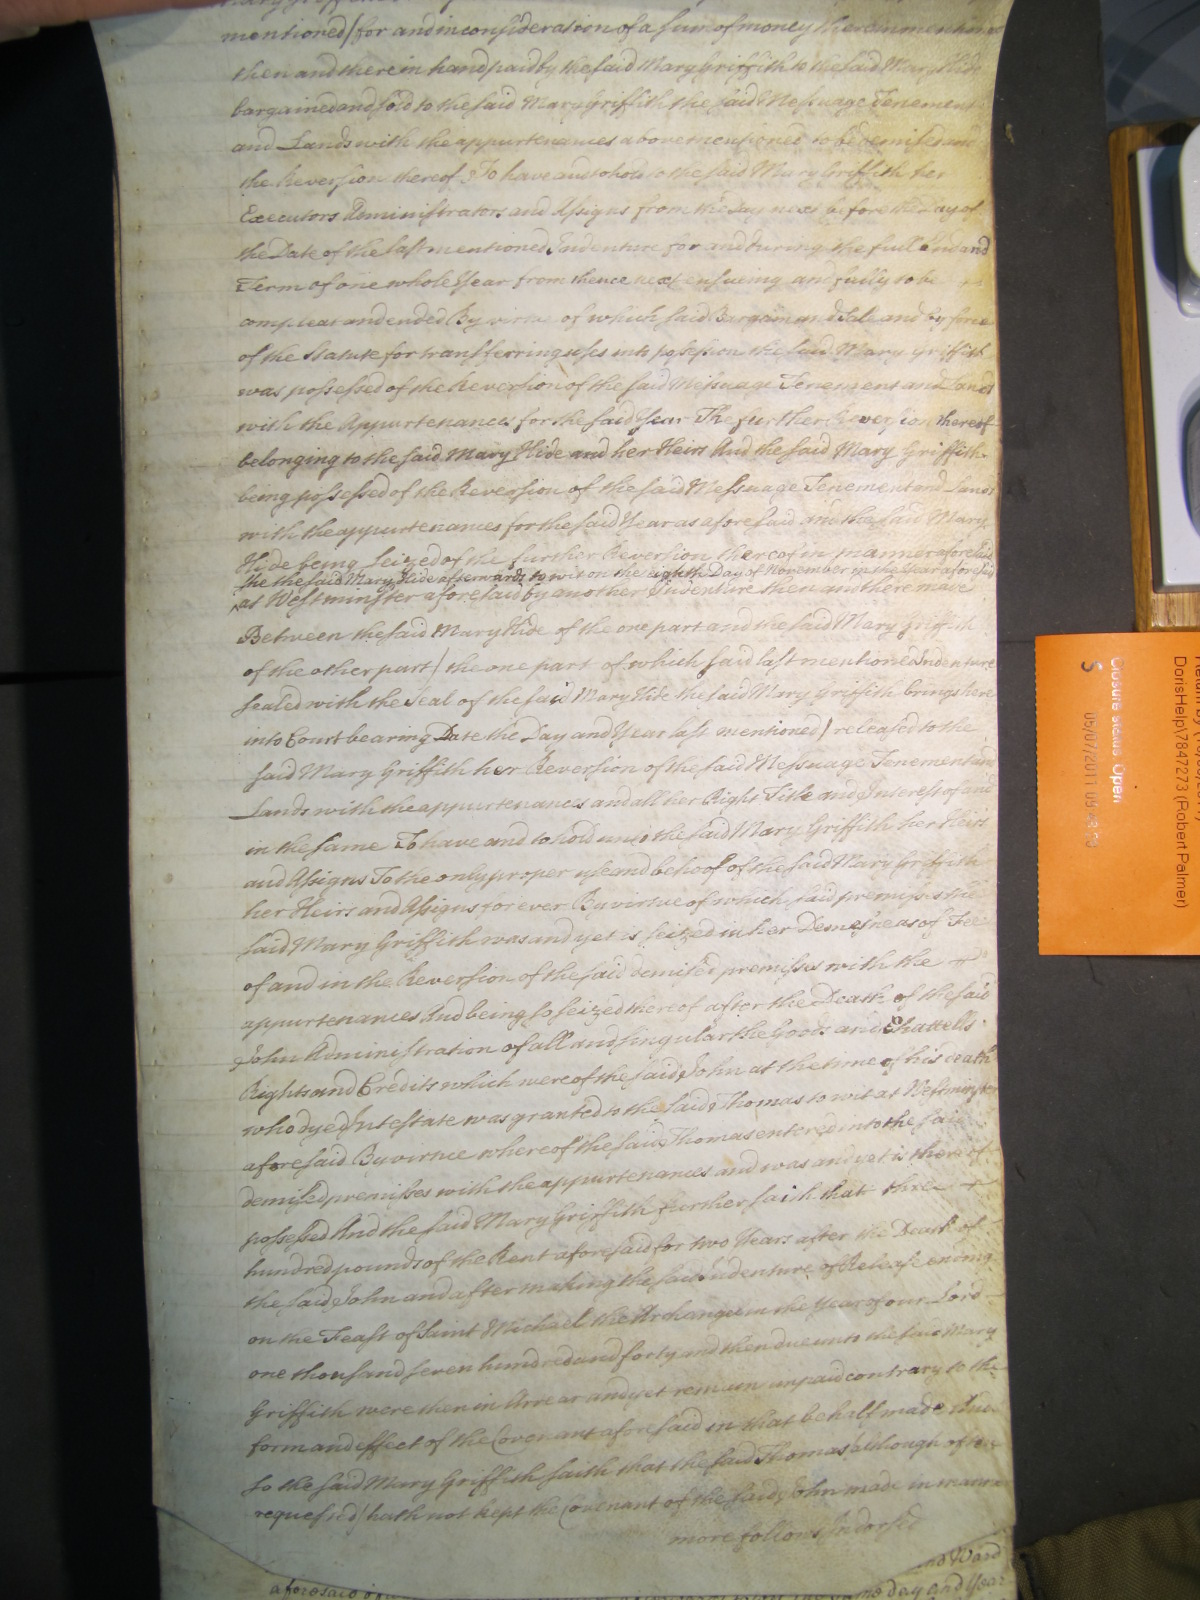 mentioned / for and in consideration of a sum of money therein mentioned
then and there in hand paid by the said Mary Griffith to the said Mary Hide
bargained and sold to the said Mary Griffith the said Messuage Tenement
and Lands with the appurtenances abovementioned to be demised and
the Reversion thereof To have and to hold to the said Mary Griffith her
Executors Administrators and Assigns from the day next before the day of
the Date of the last mentioned Indenture for and during the full End and
Term of one whole Year from thence next ensueing and fully to be
compleat and ended By virtue of which said Bargain and Sale and by force
of the Statute for transferring uses into possession the said Mary Griffith
was possessed of the Reversion of the said Messuage Tenement and Lands
with the Appurtenances for the said Year The further Reversion thereof
belonging to the said Mary Hide and her Heirs And the said Mary Griffith
being possessed of the Reversion of the said Messuage Tenement and Lands
with the appurtenances for the said Year as aforesaid and the said Mary
Hide being Seized of the further Reversion thereof in manner aforesaid
She the said Mary Hide afterwards to wit on the eighth Day of November in the Year aforesaid
at Westminster aforesaid by another Indenture then and there made
Between the said Mary Hide of the one part and the said Mary Griffith
of the other part / the one part of which said last mentioned Indenture
sealed with the Seal of the said Mary Hide the said Mary Griffith brings here
into Court bearing Date the Day and Year last mentioned / released to the
said Mary Griffith her Reversion of the said Messuage Tenement and
Lands with the appurtenances and all her Right Title and Interest of and
in the same To have and to hold unto the said Mary Griffith her Heirs
and Assigns To the only proper use and behoof of the said Mary Griffith
her Heirs and Assigns for ever By virtue of which said premisses the
said Mary Griffith was and yet is seized in her Demesne as of Fee
of and in the Reversion of the said demised premisses with the
appurtenances And being so seized thereof after the Death of the said
John Administration of all and singular the Goods and Chattells
Rights and Credits which were of the said John at the time of his death
who dyed Intestate was granted to the said Thomas to wit at Westminster
aforesaid By virtue whereof the said Thomas entered into the said
demised premisses with the appurtenances and was and yet is thereof
possessed And the said Mary Griffith further saith that three
hundred pounds of the Rent aforesaid for two Years after the Death of
the said John and after making the said Indenture of Release ending
on the Feast of Saint Michael the Archangel in the Year of our Lord
one thousand seven hundred and forty and then due unto the said Mary
Griffith were then in Arrear and yet remain unpaid contrary to the
form and effect of the Covenant aforesaid in that behalf made And
so the said Mary Griffith saith that the said Thomas / although often
requested / hath not kept the Covenant of the said John made in manner
more follows Indorsed
Ward
aforesaid
day and Year
Closure status Open
5
05/07/2011 09:23:23
DorisHelp\7847273 (Robert Palmer)